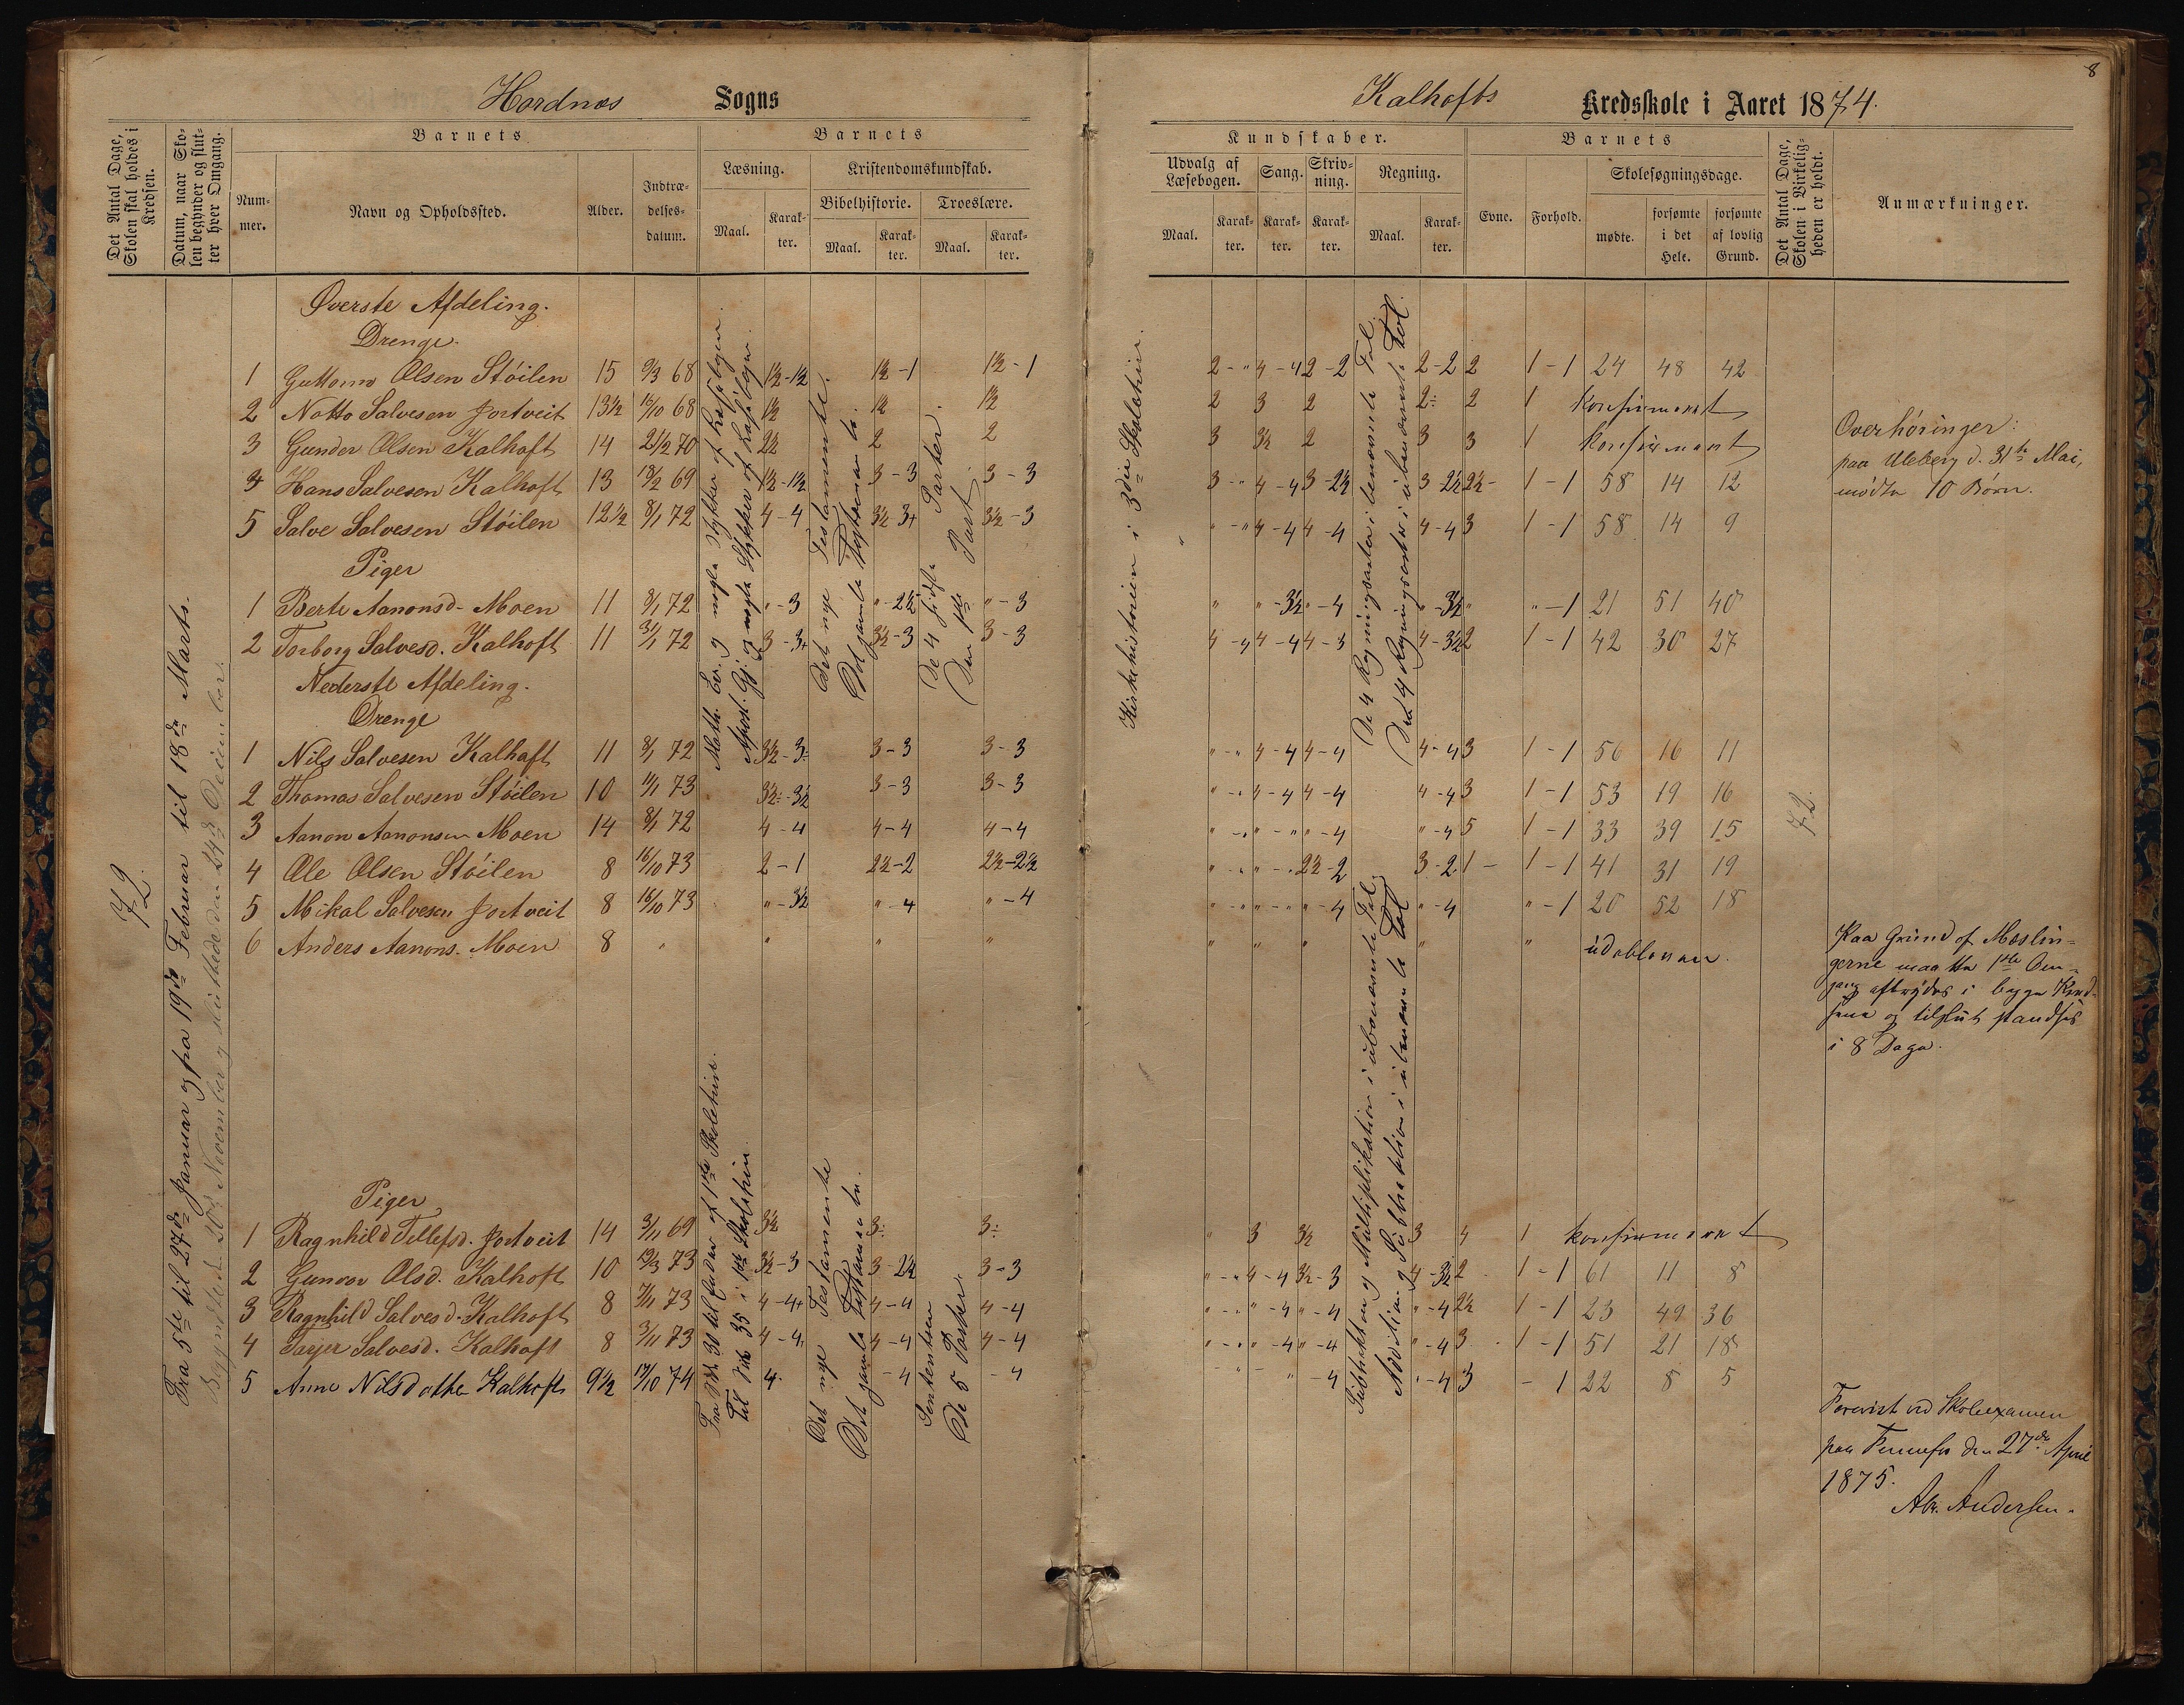 8
Hordnæs Sogns
Kalhofts Kredsskole i Aaret 1874.
Det Antal Dage, Skolen skal holdes i Kredsen.
Datum, naar Skolen begynder og slutter hver Omgang.
Barnets
Nummer.
Navn og Opholdssted.
Alder.
Indtrædelsesdatum.
Barnets
Læsning.
Maal.
Karakter.
Kristendomskundskab.
Bibelhistorie.
Maal.
Karakter.
Troeslære.
Maal.
Karakter.
Kundskaber.
Udvalg af Læsebogen.
Maal.
Karakter.
Sang.
Karakter.
Skrivning.
Karakter.
Regning.
Maal.
Karakter.
Barnets
Evne.
Forhold.
Skolesøgningsdage.
mødte.
forsømte i det Hele.
forsømte af lovlig Grund.
Det Antal Dage, Skolen i Virkeligheden er holdt.
Anmærkninger.
72.
Fra 5te til 27de Januar og fra 19de Februar til 18de Marts.
Begyndte den 20de November og sluttede den 24de December.
Øverste Afdeling.
Drenge.
1 Guttorm Olsen Stöilen 15 9/3 68 1½-1½ 1½-1 1½-1 2-" 4-4 2-2 2-2 2 1-1 24 48 42
2 Notto Salvesen Jortveit 13½ 16/10 68 1½ 1½ 1½ 2 3 2 2÷ 2 1 konfirmeret
3 Gunder Olsen Kalhoft 14 21/2 70 2½ 2 2 3 3½ 2 3 3 1 konfirmeret
4 Hans Salvesen Kalhoft 13 18/2 69 1½-1½ 3-3 3-3 3-" 4-4 3-2½ 3-2½ 2½- 1-1 58 14 12
5 Salve Salvesen Stöilen 12½ 8/1 72 4-4 3½-3+ 3½-3 "-" 4-4 4-4 4-4 3 1-1 58 14 9
Piger
1 Berte Aanonsd. Moen 11 8/1 72 "-3 "-2½ "-3 " "-3½ "-4 "-3½ " "-1 21 51 40
2 Torborg Salvesd. Kalhoft 11 3/1 72 3-3+ 3½-3 3-3 4-4 4-4 4-3 4-3½ 2 1-1 42 30 27
Nederste Afdeling.
Drenge
1 Nils Salvesen Kalhoft 11 8/1 72 3½-3÷ 3-3 3-3 "-" 4-4 4-4 4-4 3 1-1 56 16 11
2 Thomas Salvesen Stöilen 10 11/1 73 3½÷-3½ 3-3 3-3 "-" 4-4 4-4 4-4 3 1-1 53 19 16
3 Aanon Aanonsen Moen 14 8/1 72 4-4 4-4 4-4 "-" "-" "-4 "-4 5 1-1 33 39 15
4 Ole Olsen Stöilen 8 16/10 73 2-1 2½-2 2½-2½ "-" "-" 2½-2 3-2 1- 1-1 41 31 19
5 Mikal Salvesen Jortveit 8 16/10 73 "-3½ "-4 "-4 "-" "-" "-4 "-4 "-1 20 52 18
6 Anders Aanons. Moen 8 " " " " " " " " " udebleven.
Piger
1 Ragnhild Tellefsd. Jortveit 14 3/11 69 3½ 3÷ 3÷ " 3 3½ 3 4 1 konfirmeret
2 Gunvor Olsd. Kalhoft 10 19/3 73 3½-3 3-2½ 3-3 "-" 4-4 3½-3 4-3½ 2 1-1 61 11 8
3 Ragnhild Salvesd. Kalhoft 8 7/11 73 4-4+ 4-4 4-4 "-" "-4 "-4 "-4 2½ 1-1 23 49 36
4 Tarjer Salvesd. Kalhoft 8 3/11 73 4-4 4-4 4-4 "-" "-4 "-4 "-4 3 1-1 51 21 18
5 Anne Nilsdatter Kalhoft 9½ 19/10 74 4 -4 -4 "-4 "-4 3 -1 22 8 5
Math. Ev. og nogle Stykker af Læsebogen.
Apost. Gj. og nogle Stykker af Læsebogen.
Det nye Testamente.
Det gamle Testamente.
De 4 sidste Parter.
Den 1ste Part.
Fra Stk. 30 til Enden af 1ste Skoletrin.
Til Stk 35 i 1ste Skoletrin.
Det nye Testamente
Det gamle Testamente.
Sententsen
De 5 Parter.
Kirkehistorien i 3die Skoletrin.
De 4 Regningsarter i benævnte Tal.
De 4 Regningsarter i ubenævnte Tal.
Subtraktion og Multiplikation i ubenævnte Tal.
Addition og Subtraktion i ubenævnte Tal
72.
Overhøringer:
paa Uleberg d. 31te Mai,
mødte 10 Børn.
Paa Grund af Mæslin-
gerne maatte 1ste Om-
gang afbrydes i begge Kred-
sene og tilslut standses
i 8 Dage.
Forevist ved Skoleexamen
paa Fennefos den 27de April
1875.
Abr. Andersen.